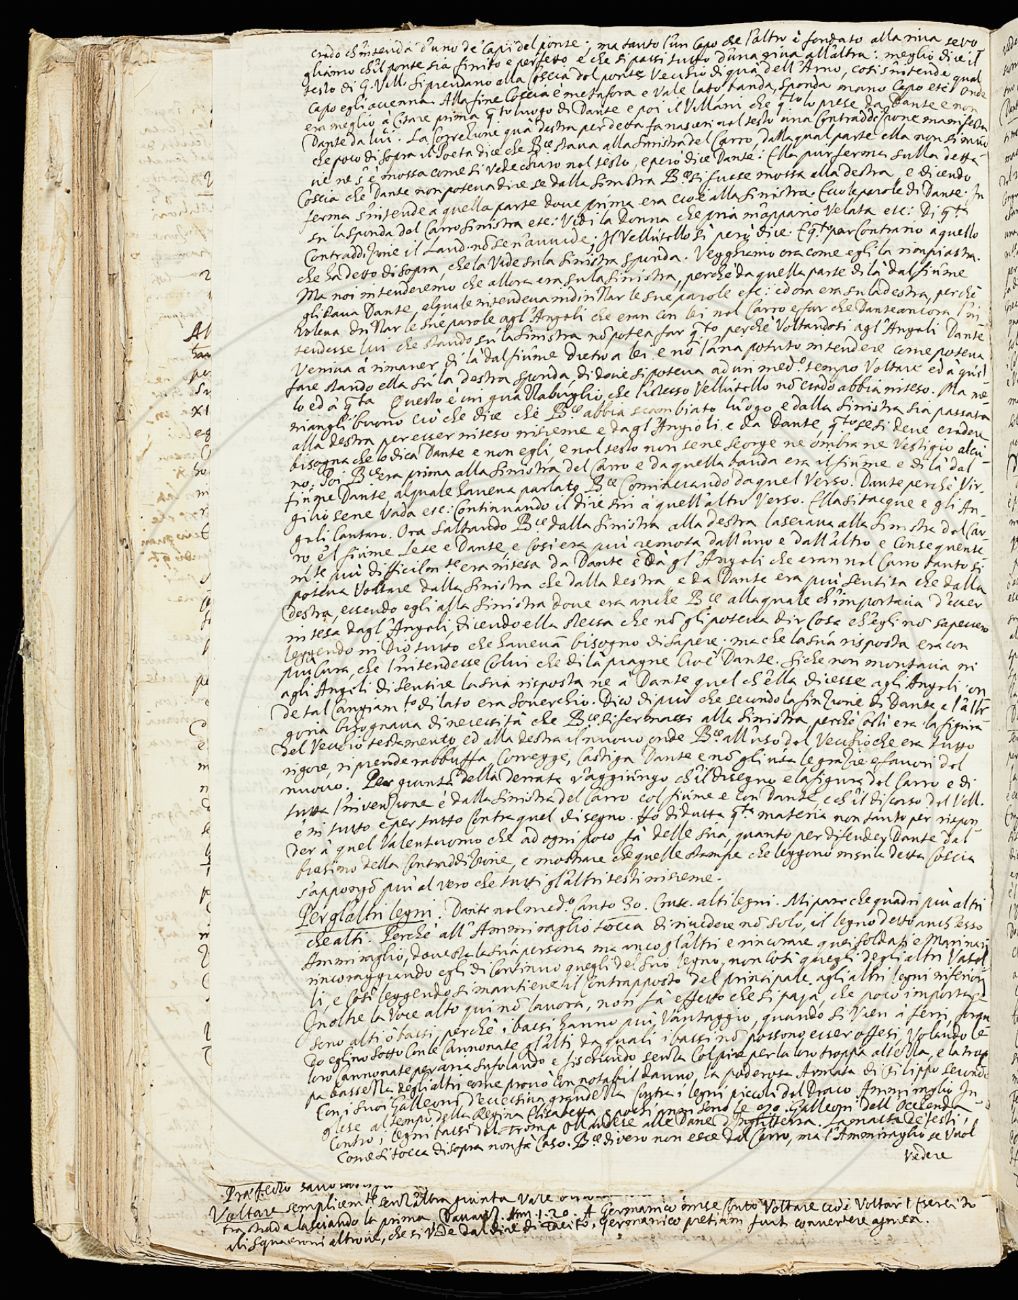 credo ch'intenda d'uno de' Capi del ponte; ma tanto l'un Capo che l'altro è fondato alla riva se vo
gliamo ch'il ponte sia finito e perfetto e che si passi tutto d'una riva all'altra: meglio dice il
testo di G. Vill. si prendano alla coscia del ponte Vecchio di qua dell'Arno, così s'intende qual
Capo egli accenna. Alla fine Coscia è metafora e vale lato banda, sponda mano Capo etc. onde
era meglio a Citare prima q.to luogo di Dante e poi il Villani che q.to lo prese da Dante e non
Dante da lui. La Correzione qua destra per detta fa nascer nel testo una Contraddizione manifesta
che poco di sopra il Poeta dice che B.ce stava alla sinistra del Carro, dalla qual parte ella non si muo
ve ne s'è mossa come si vede chiaro nel testo, e però dice Dante: Ella pur ferma sulla detta
Coscia che Dante non poteva dire se dalla sinistra B.ce si fusse mossa alla destra, e dicendo
ferma s'intende a quella parte dove prima era cioè alla sinistra. Ecco le parole di Dante: In
su la sponda del Carro sinistra etc: Vidi la Donna che pria m'appario Velata etc: Di q.ta
Contraddizione il Land. nō se n'avvide; Il Vellutello sì però dice. E q.to par Contrario a quello
che ha detto di sopra, che la Vide su la sinistra sponda. Veggiamo ora come egli la rimpiastra.
Ma noi intenderemo che allora era su la sinistra, perchè da quella parte di là dal fiume
gli stava Dante, al quale intendeva indirizzar le sue parole etc: ed ora era su la destra, perchè
voleva drizzar le sue parole agl'Angeli che eran con lei nel Carro e far che Dante ancora l'in
tendesse lui che stando su la sinistra nō potea far q.to, perchè Voltandosi agl'Angeli Dante
Veniva a rimaner di là dal fiume dietro a lei e nō l'aria potuto intendere come poteva
fare stando ella su la destra sponda di dove si poteva ad un med.o tempo Voltare ed a quel
lo ed a q.ta. Questo è un guazzabuglio che l'istesso Vellutello nō credo abbia inteso. Ma me
niangli buono ciò che dice che B.ce abbia scambiato luogo e dalla sinistra sia passata
alla destra per esser intesa insieme e dagl'Angioli e da Dante, q.to se si deve credere
bisogna che lo dica Dante e non egli, e nel testo non se ne scorge ne ombra ne Vestigio alcu
no: Poi B.ce era prima alla sinistra del Carro e da quella banda era il fiume e di là dal
fiume Dante al quale haveva parlato B.ce Cominciando da quel Verso. Dante perchè Vir
gilio se ne Vada etc: Continuando il dire sin a quell'altro Verso. Ella si tacque e gli An
geli Cantaro. Ora saltando B.ce dalla sinistra alla destra lasciava alla sinistra del Car
ro e'l fiume Lete e Dante e Così era più remota dall'uno e dall'altro e Conseguente
m.te più difficilm.te era intesa da Dante e da gl'Angeli che eran nel Carro tanto si
poteva Voltare dalla sinistra che dalla destra e da Dante era più sentita che dalla
destra, essendo egli alla sinistra dove era anche B.ce alla quale ch'importava d'esser
intesa dagl'Angeli, dicendo ella stessa che nō gli poteva dir Cosa ch'egli nō sapessero
leggendo in Dio tutto che havevā bisogno di sapere: ma che la sua risposta era con
più Cura, che l'intendesse Colui che di là piagne Cioè Dante. Siche non montava ni
agli Angeli di sentire la sua risposta ne a Dante quel ch'ella dicesse agli Angeli on
de tal Cangiam.to di lato era soverchio. Dico di più che secondo la finzione di Dante e l'alle
goria bisognava di necessità che B.ce si fermassi alla sinistra perchè così era la figura
del Vecchio testamento, ed alla destra il nuovo onde B.ce all'uso del Vecchio che era tutto
rigore, riprende rabbuffa, Corregge, Castiga Dante e nō gli usa le grazie e favori del
nuovo. Per giunta della derrata v'aggiungo ch'il disegno e la figura del Carro e di
tutta l'invenzione è dalla sinistra del Carro col fiume e con Dante, e ch'il discorso del Vell.
è in tutto e per tutto Contra quel disegno. Hò di tutta q.ta materia non tanto per rispon
der a quel Valentuomo che ad ogni poco fa delle sua quanto per difender Dante dal
biasimo della Contraddizione, e mostrare che quelle stampe che leggono in su la detta Coscia
s'appongō più al vero che tutti gl'altri testi insieme.
Per gl'altri legni. Dante nel med.o Canto 30. Cont. alti legni. Mi pare che quadri più altri
che alti. Perche all'Ammiraglio tocca di riveder nō solo, il legno detto anch'esso
Ammiraglio, dove sta la sua persona ma anco gl'altri e rincorare quei soldati e Marinari
rincoraggiando egli di Continuo quegli del suo legno, non così quegli degli altri Vasel
li, e Così leggendo si mantiene il Contrapposto del principale agli altri legni inferiori
Inoltre la Voce alto qui nō lavora, non fa effetto che si paja, che poco importa
sono alti ò bassi, perchè i bassi hanno più Vantaggio, quando si Vien a ferri,
do eglino sotto Con le Cannonate gl'alti da quali i bassi nō possono esser offesi, Volando le
loro Cannonate per aria sufolando e fischiando senza Colpire per la loro troppa altezza, e la trop
pa bassezza degli altri come provò con notabil danno, la poderosa Armata di Filippo secondo
Con i suoi Galleoni d'eccessiva grandezza Contra i legni piccoli del Draco Ammiraglio In
glese al tempo della Regina Elisabetta, e poi Galleoni dell'
Contro i legni bassi del Tromp Ollandese alle Dune d'Inghilterra. La mossa de' testi,
Come si tocca di sopra non fa Caso. B.ce di vero non esce dal Carro, ma l'Ammiraglio se Vuol
Vedere
Voltare semplicem.te senz'altra giunta Vale
strada lasciando la prima Davanz. Ann. 1. 20. A Germanico
di squadroni altrove, che si Vede dal dire di Tacito, Germanico pretium fuit convertere agmen.